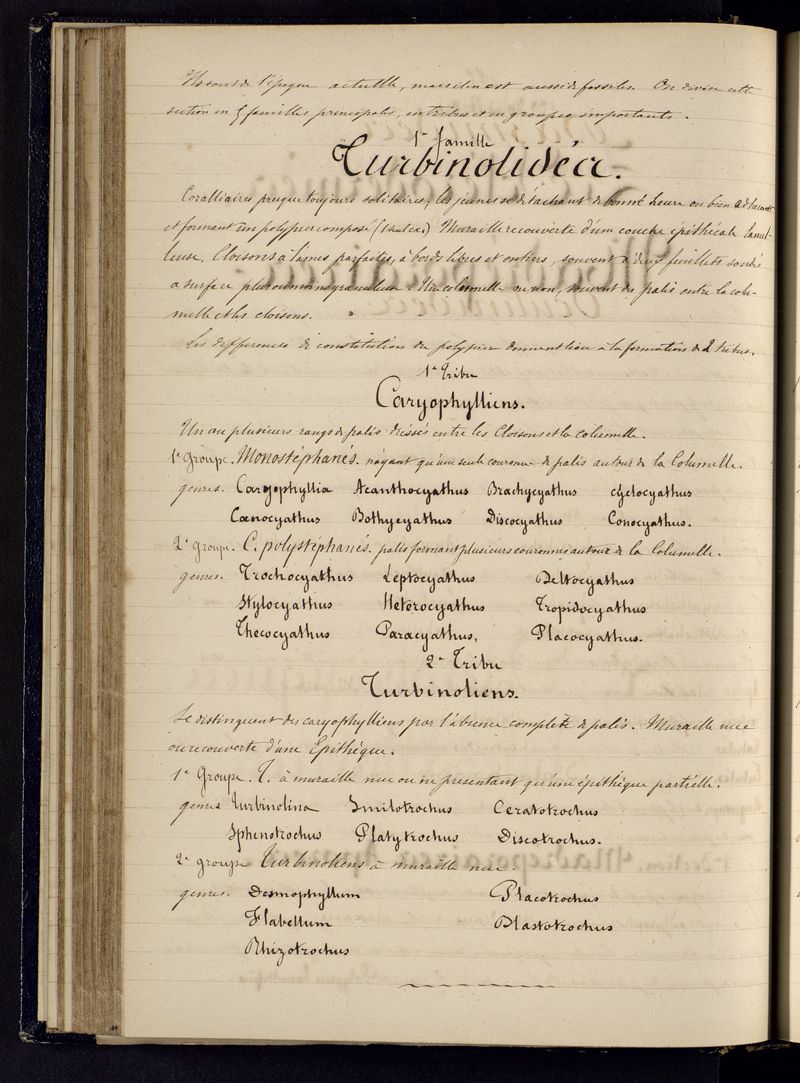 Ils sont de l'époque actuelle, mais il en est aussi de fossiles. On divise cette
section en familles principales, en tribus et en groupes importants.
1re famille
Turbinolidéa.
Coralliaires presque toujours solitaires, les jeunes se détachant de bonne heure ou bien adhérant
et formant un polypier composé (1 seul cas) Muraille recouverte d'une couche épithécale lamel-
leuse. Cloisons à lames parfaites, à bords libres et entiers, souvent à deux feuillets soudés
a surface plus ou moins granuleuse. Une columelle ou non, souvent des palis entre la colu-
melle et les cloisons.
Les differences de constitution du polypier donnent lieu à la formation de 2 tribus.
1re Tribu
Caryophylliens.
Un ou plusieurs rangs de palis dressés entre les Cloisons et la columelle.
1er groupe. Monostéphanés. n'ayant qu'une seule couronne de palis autour de la Columelle.
genres. Caryophyllia Acanthocyathus Brachycyathus Cyclocyathus
Cœnocyathus Bathycyathus Discocyathus Conocyathus.
2e groupe. C. polystéphanés. palis formant plusieurs couronnes autour de la Columelle.
genres. Trochocyathus Leptocyathus Deltocyathus
Stylocyathus Heterocyathus Tropidocyathus
Thecocyathus Paracyathus, Placocyathus.
2e Tribu
Turbinoliens.
Se distinguent des caryophylliens par l'absence complète de palis. Muraille nue
ou recouverte d'une Epithèque.
1er Groupe. T. à muraille nue ou ne présentant qu'une épithèque partielle.
genres Turbinolina Smilotrochus Ceratotrochus
Sphenotrochus Platytrochus Discotrochus.
2e groupe Turbinoliens à muraille nue.
genres. Desmophyllum Placotrochus
Flabellum Blastotrochus
Rhizotrochus